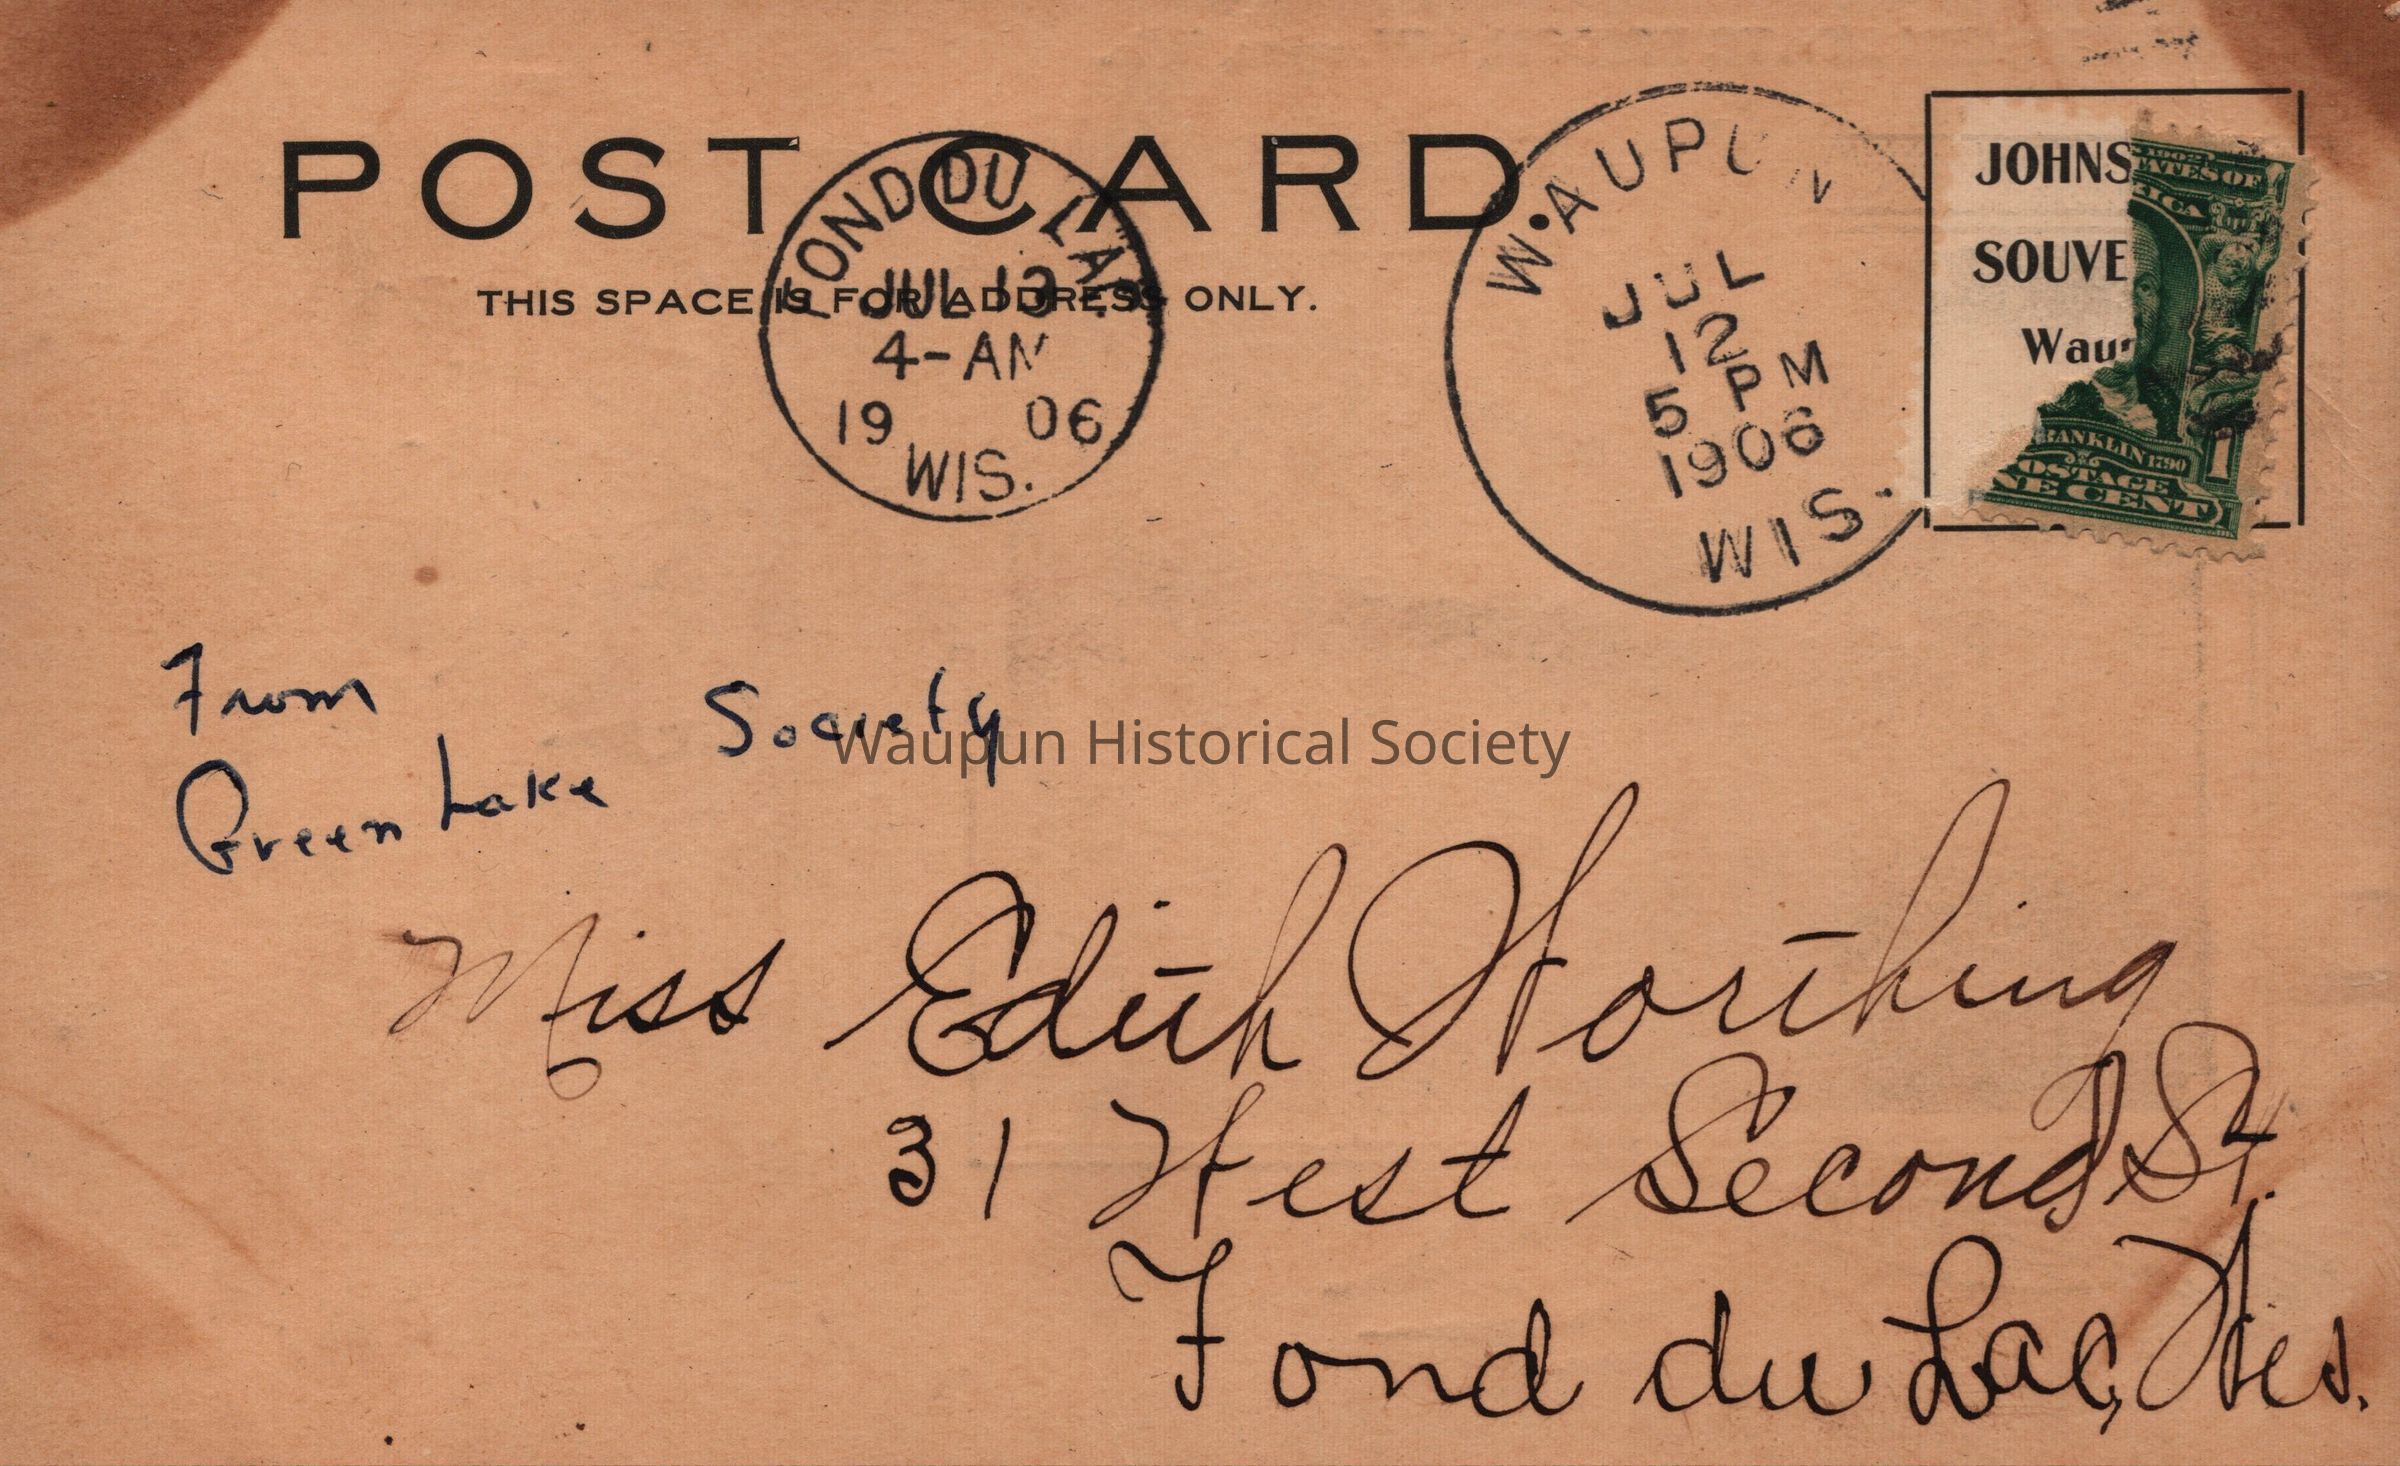 POST CARD.
THIS SPACE IS FOR ADDRESS ONLY.
FOND DU LAC
JUL 13
4-AM
19 06
WIS.
WAUPUN
JUL
12
5 PM
1906
WIS.
JOHNS
SOUVE
Waup
1902
ATES OF
ICA
FRANKLIN 1790
POSTAGE 1
ONE CENT
From
Green Lake Society
Waupun Historical Society
Miss Edith Worthing
31 West Second St.
Fond du Lac, Wis.